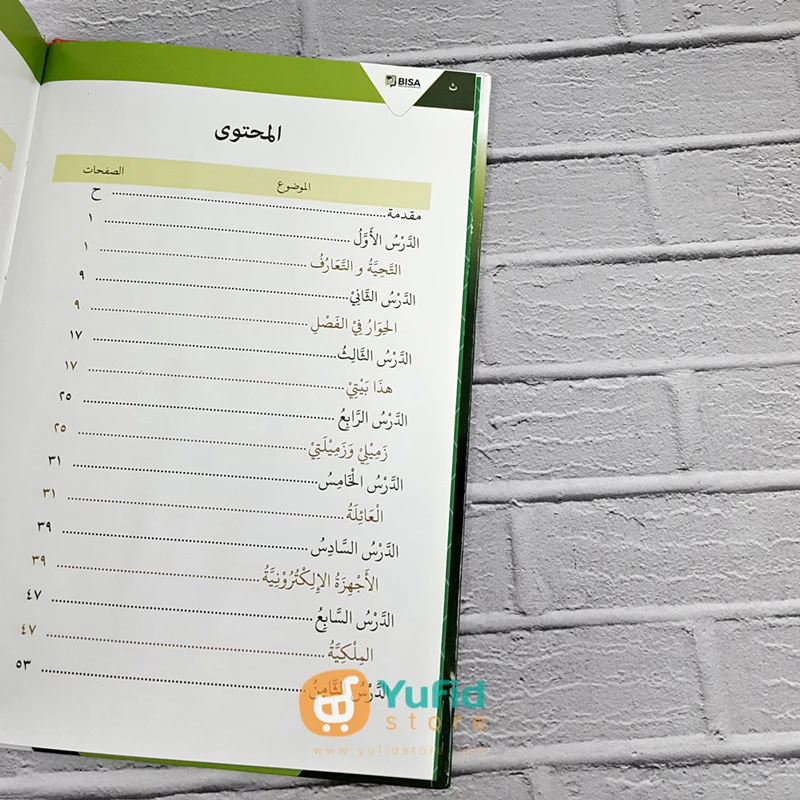 BISA
ث
المحتوى
الموضوع الصفحات
مقدمة ح
الدَّرْسُ الأَوَّلُ ١
التَّحِيَّةُ و التَّعَارُفُ ١
الدَّرْسُ الثَّانِيْ ٩
الحِوَارُ فِيْ الفَصْلِ ٩
الدَّرْسُ الثَّالِثُ ١٧
هذَا بَيْتِيْ ١٧
الدَّرْسُ الرَّابِعُ ٢٥
زَمِيْلِيْ وَزَمِيْلَتِيْ ٢٥
الدَّرْسُ الْخَامِسُ ٣١
الْعَائِلَةُ ٣١
الدَّرْسُ السَّادِسُ ٣٩
الأَجْهِزَةُ الإِلِكْتُرُوْنِيَّةُ ٣٩
الدَّرْسُ السَّابِعُ ٤٧
المِلْكِيَّةُ ٤٧
الدَّرْسُ الثَّامِنُ ٥٣
Yufid
store
www.yufidstore.com